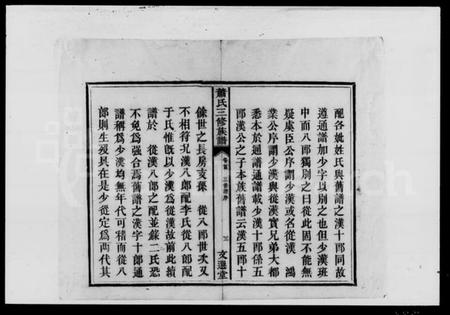 配各就姓氏與舊譜之漢十郎同故
遵通譜加少字以別之也但少漢班
中而八郎獨別之曰從此固不能無
疑虞臣公序謂少漢或名從漢 鴻
業公序謂少漢與從漢實兄弟大都
悉本於通譜通譜載少漢十郎係五
郎漢公之子本族舊譜云漢五郎十
蕭氏三修族譜
文運堂
餘世之長房支系 從八郎世次又
不相符況漢八郎配李氏從八郎配
于氏惟既以少漢爲從漢故前此續
譜於 從漢八郎之配並錄二氏恐
不免爲強合焉舊譜之漢字十郎通
譜稱爲少漢均無年代可稽而從八
郎則生歿具在是少從定爲兩代其